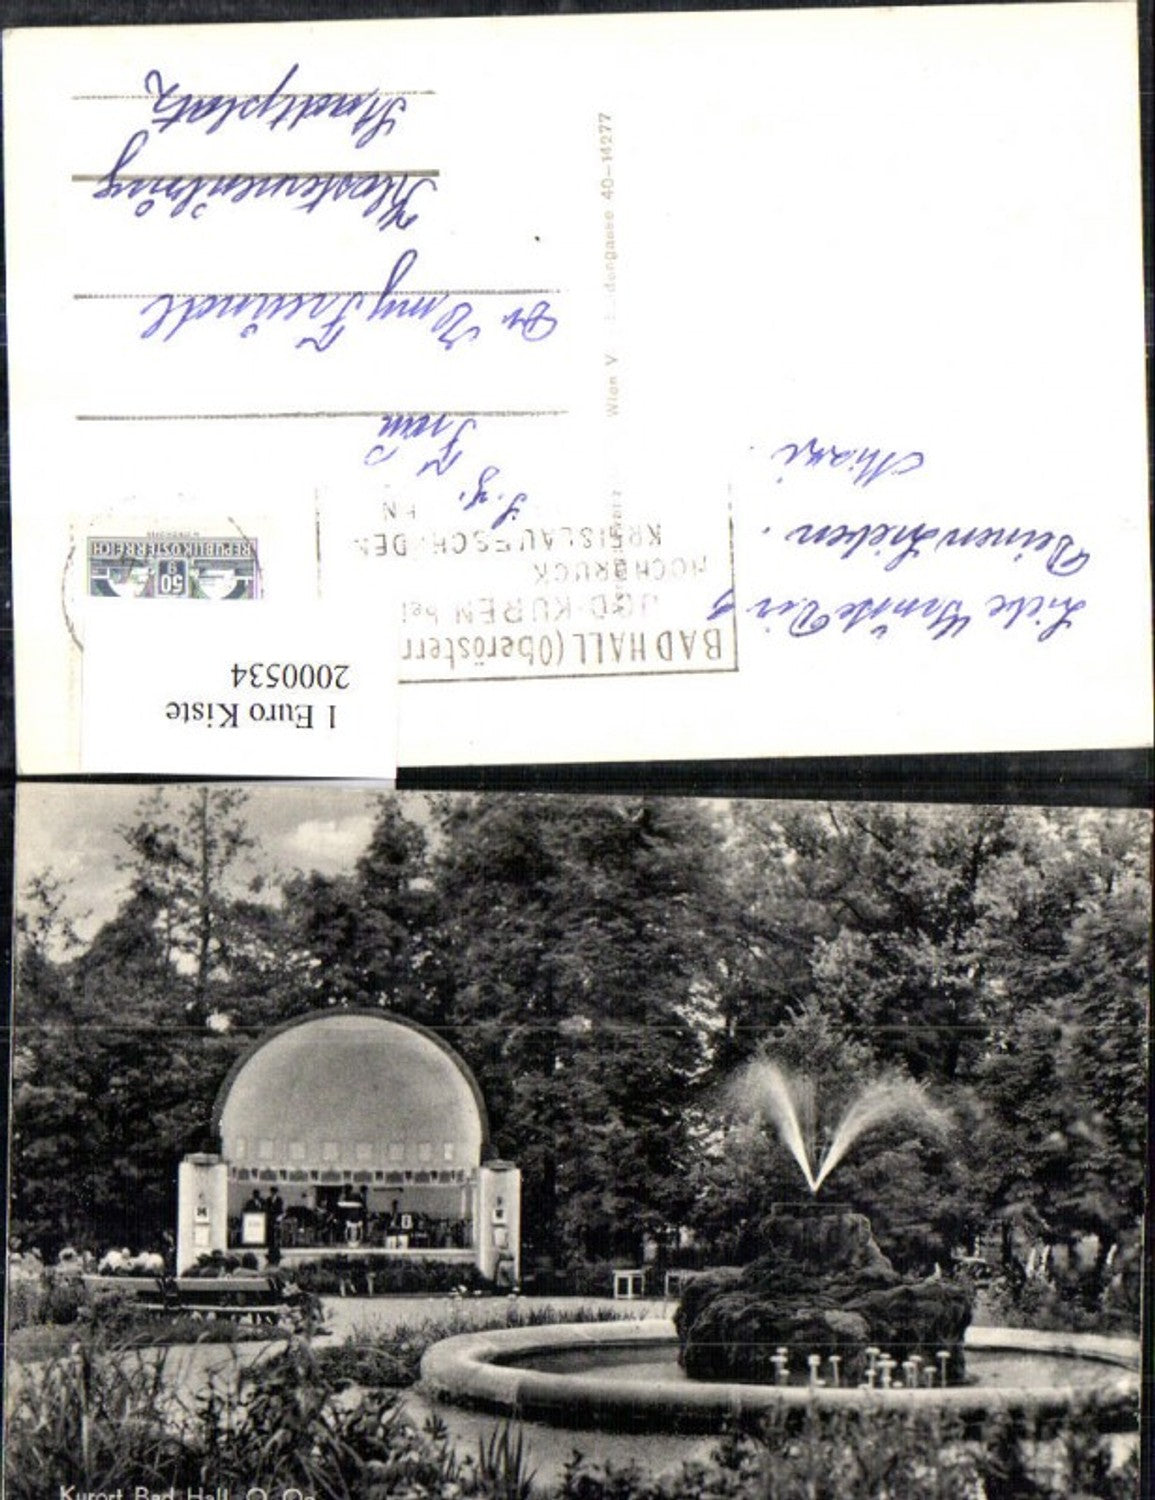 1 Euro Kiste
2000534
BAD HALL (Oberösterr
JOD-KUREN bei
HOCHDRUCK
KREISLAUFSCHÄDEN
REPUBLIK ÖSTERREICH
50 g
Liebe Grüße Dir &
Deinen Lieben.
Mizzi.
Frau
Dr. Emy Freundl
Klosterneuburg
Stadtplatz
Wien V
dengasse 40-14277
Kurort Bad Hall, O. Oe.